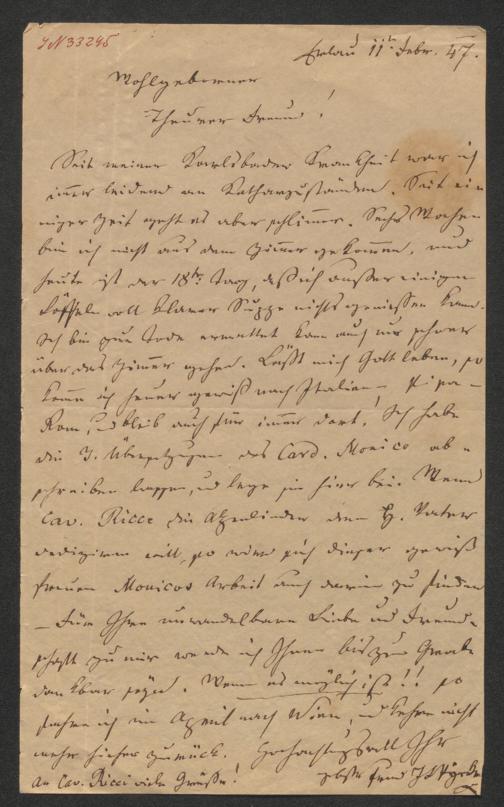 JN 33245
Erlau 11t Febr. 47.
Wohlgeborner
Theurer Freund!
Seit meiner Karlsbader Krankheit war ich
im̄er leidend an Katharzuständen. Seit ei-
niger Zeit geht es aber schlim̄er. Sechs Wochen
bin ich nicht aus dem Zim̄er gekom̄en, und
heute ist der 18te Tag, daß ich außer einigen
Löffeln voll klarer Suppe nichts genießen kann.
Ich bin zum Tode ermattet kann auch nur schwer
über das Zim̄er gehen. Läßt mich Gott leben, so
kom̄e ich heuer gewiß nach Italien – Pisa –
Rom, und bleib auch für im̄er dort! Ich habe
die 7 Übersetzungen des Card. Monico ab-
schreiben lassen, und lege sie hier bei. Wenn
Cav. Ricci die dem H. Vater
dediziren will, so wird sich dieser gewiß
freuen Monicos Arbeit auch darin zu finden
– Für Ihre unwandelbare Liebe und Freund-
schaft zu mir werde ich Ihnen bis zum Grabe
dankbar seyn. Wenn es möglich ist!! so
fahre ich im April nach Wien, und kehre nicht
mehr hieher zurück. Hochachtungsvoll Ihr
An Cav. Ricci viele Grüße! Freund